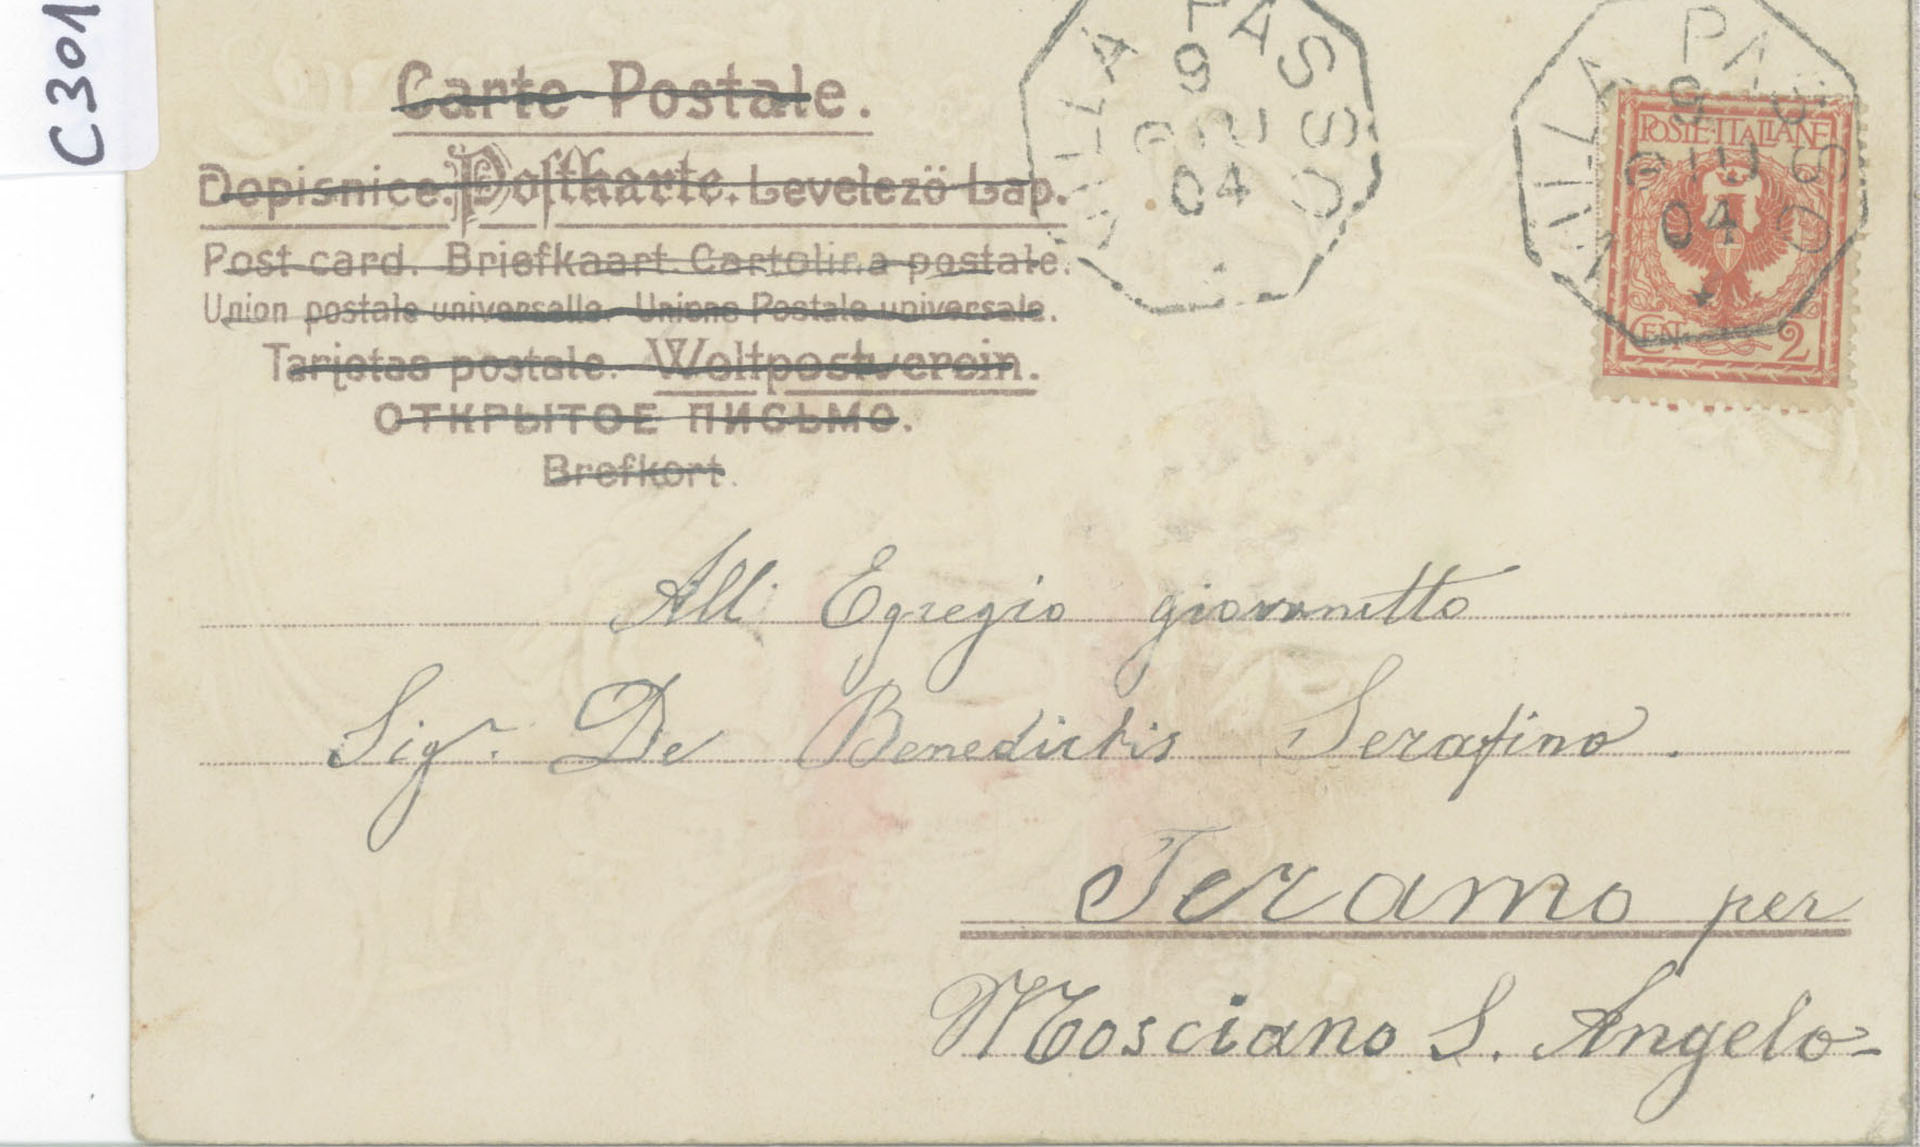 C301
Carte Postale.
Dopisnice. Postkarte. Levelezö Lap.
Post card. Briefkaart. Cartolina postale.
Union postale universelle. Unione Postale universale.
Tarjetas postale. Weltpostverein.
ОТКРЫТОЕ ПИСЬМО.
Brefkort.
VILLA PASSO
9
GIU
04
VILLA PASSO
9
GIU
04
POSTE·ITALIANE
CEN. 2
All' Egregio giovanetto
Sigr. De Benedictis Serafino.
Teramo per
Mosciano S. Angelo-